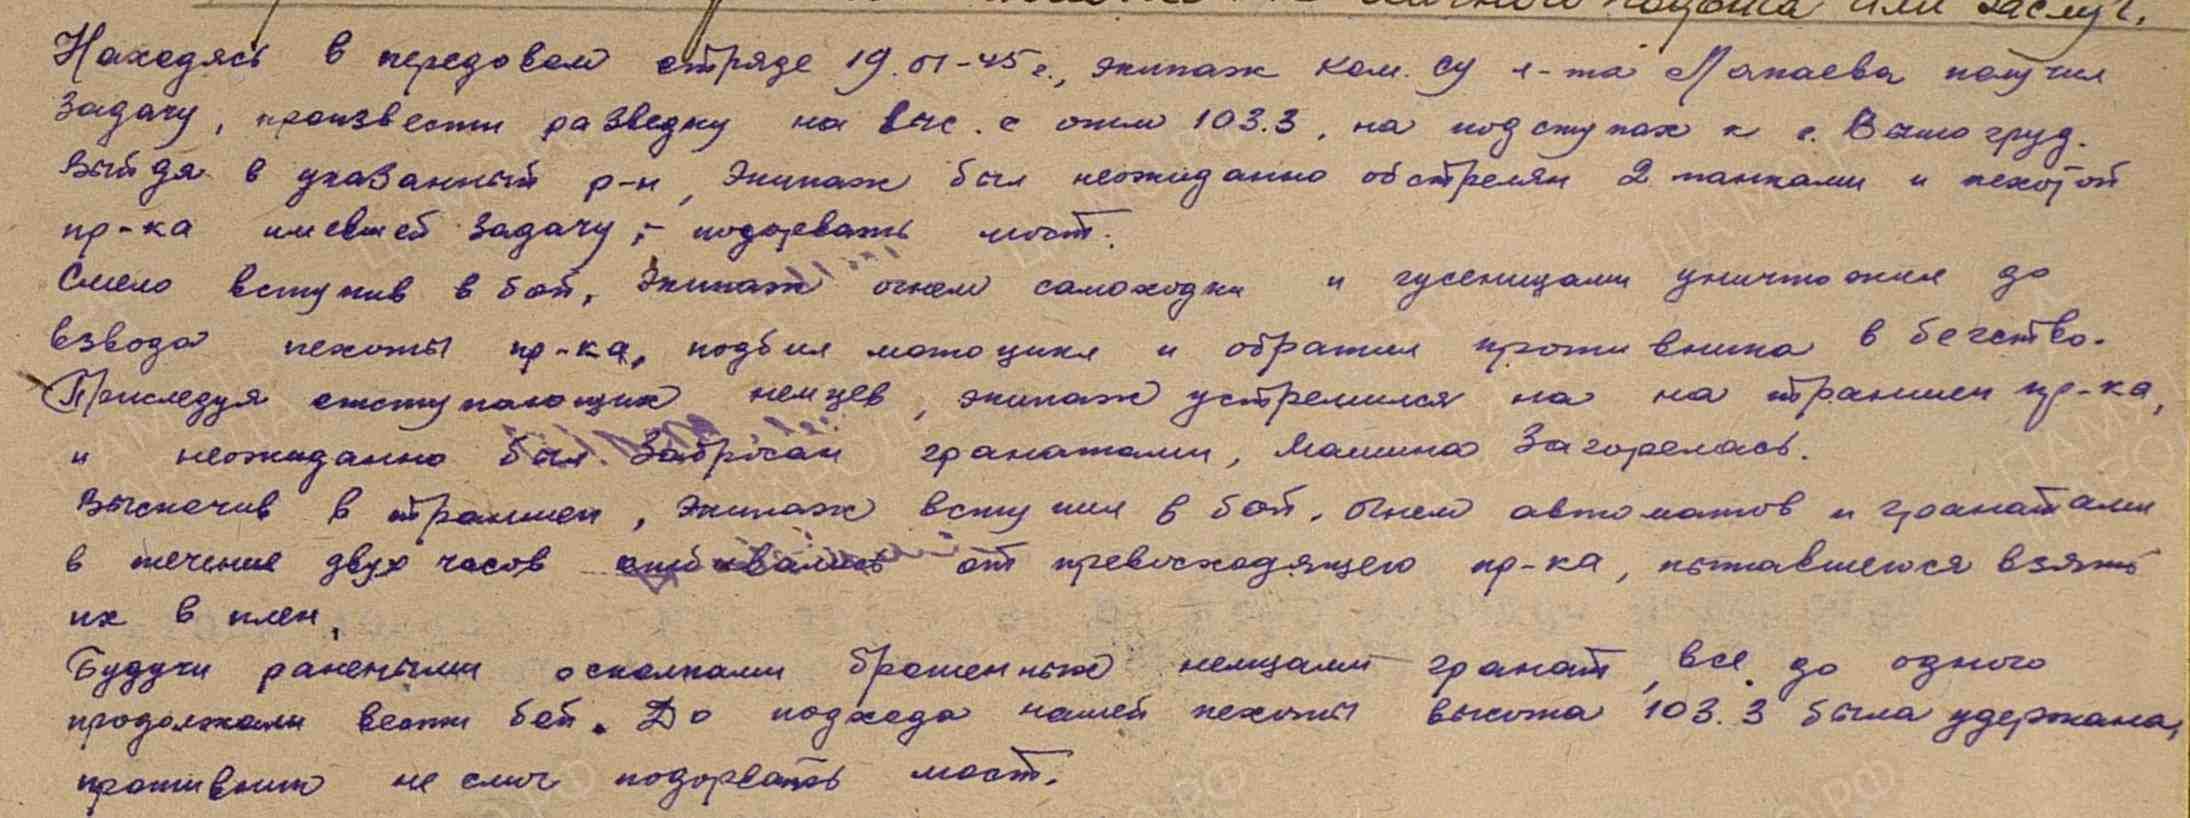 личного подвига или заслуг.
Находясь в передовом отряде 19.01-45 г., экипаж ком. СУ л-та Лапаева получил
задачу, произвести разведку на выс. с отм 103.3, на подступах к г. Вышогруд.
Выйдя в указанный р-н, экипаж был неожиданно обстрелян 2 танками и пехотой
пр-ка имевшей задачу, - подорвать мост.
Смело вступив в бой, экипаж огнем самоходки и гусеницами уничтожил до
взвода пехоты пр-ка, подбил мотоцикл и обратил противника в бегство.
Приследуя отступающих немцев, экипаж устремился на на траншеи пр-ка,
и неожиданно был забросан гранатами, машина загорелась.
Выскочив в траншеи, экипаж вступил в бой. Огнем автоматов и гранатами
в течение двух часов отбивались от превосходящего пр-ка, пытавшегося взять
их в плен.
Будучи ранеными осколками брошенных немцами гранат, все до одного
продолжали вести бой. До подхода нашей пехоты высота 103.3 была удержана,
противник не смог подорвать мост.
ЦАМО РФ
ПАМЯТЬ НАРОДА